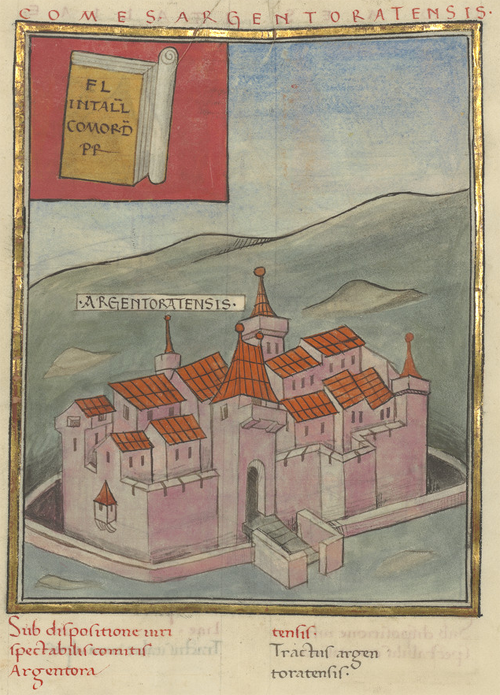 COMES ARGENTORATENSIS·
FL
INTALL̄
COMORD̄
PR
·ARGENTORATENSIS·
Sub dispositione uiri
spectabilis comitis
Argentora
tensis·
Tractus argen
toratensis·